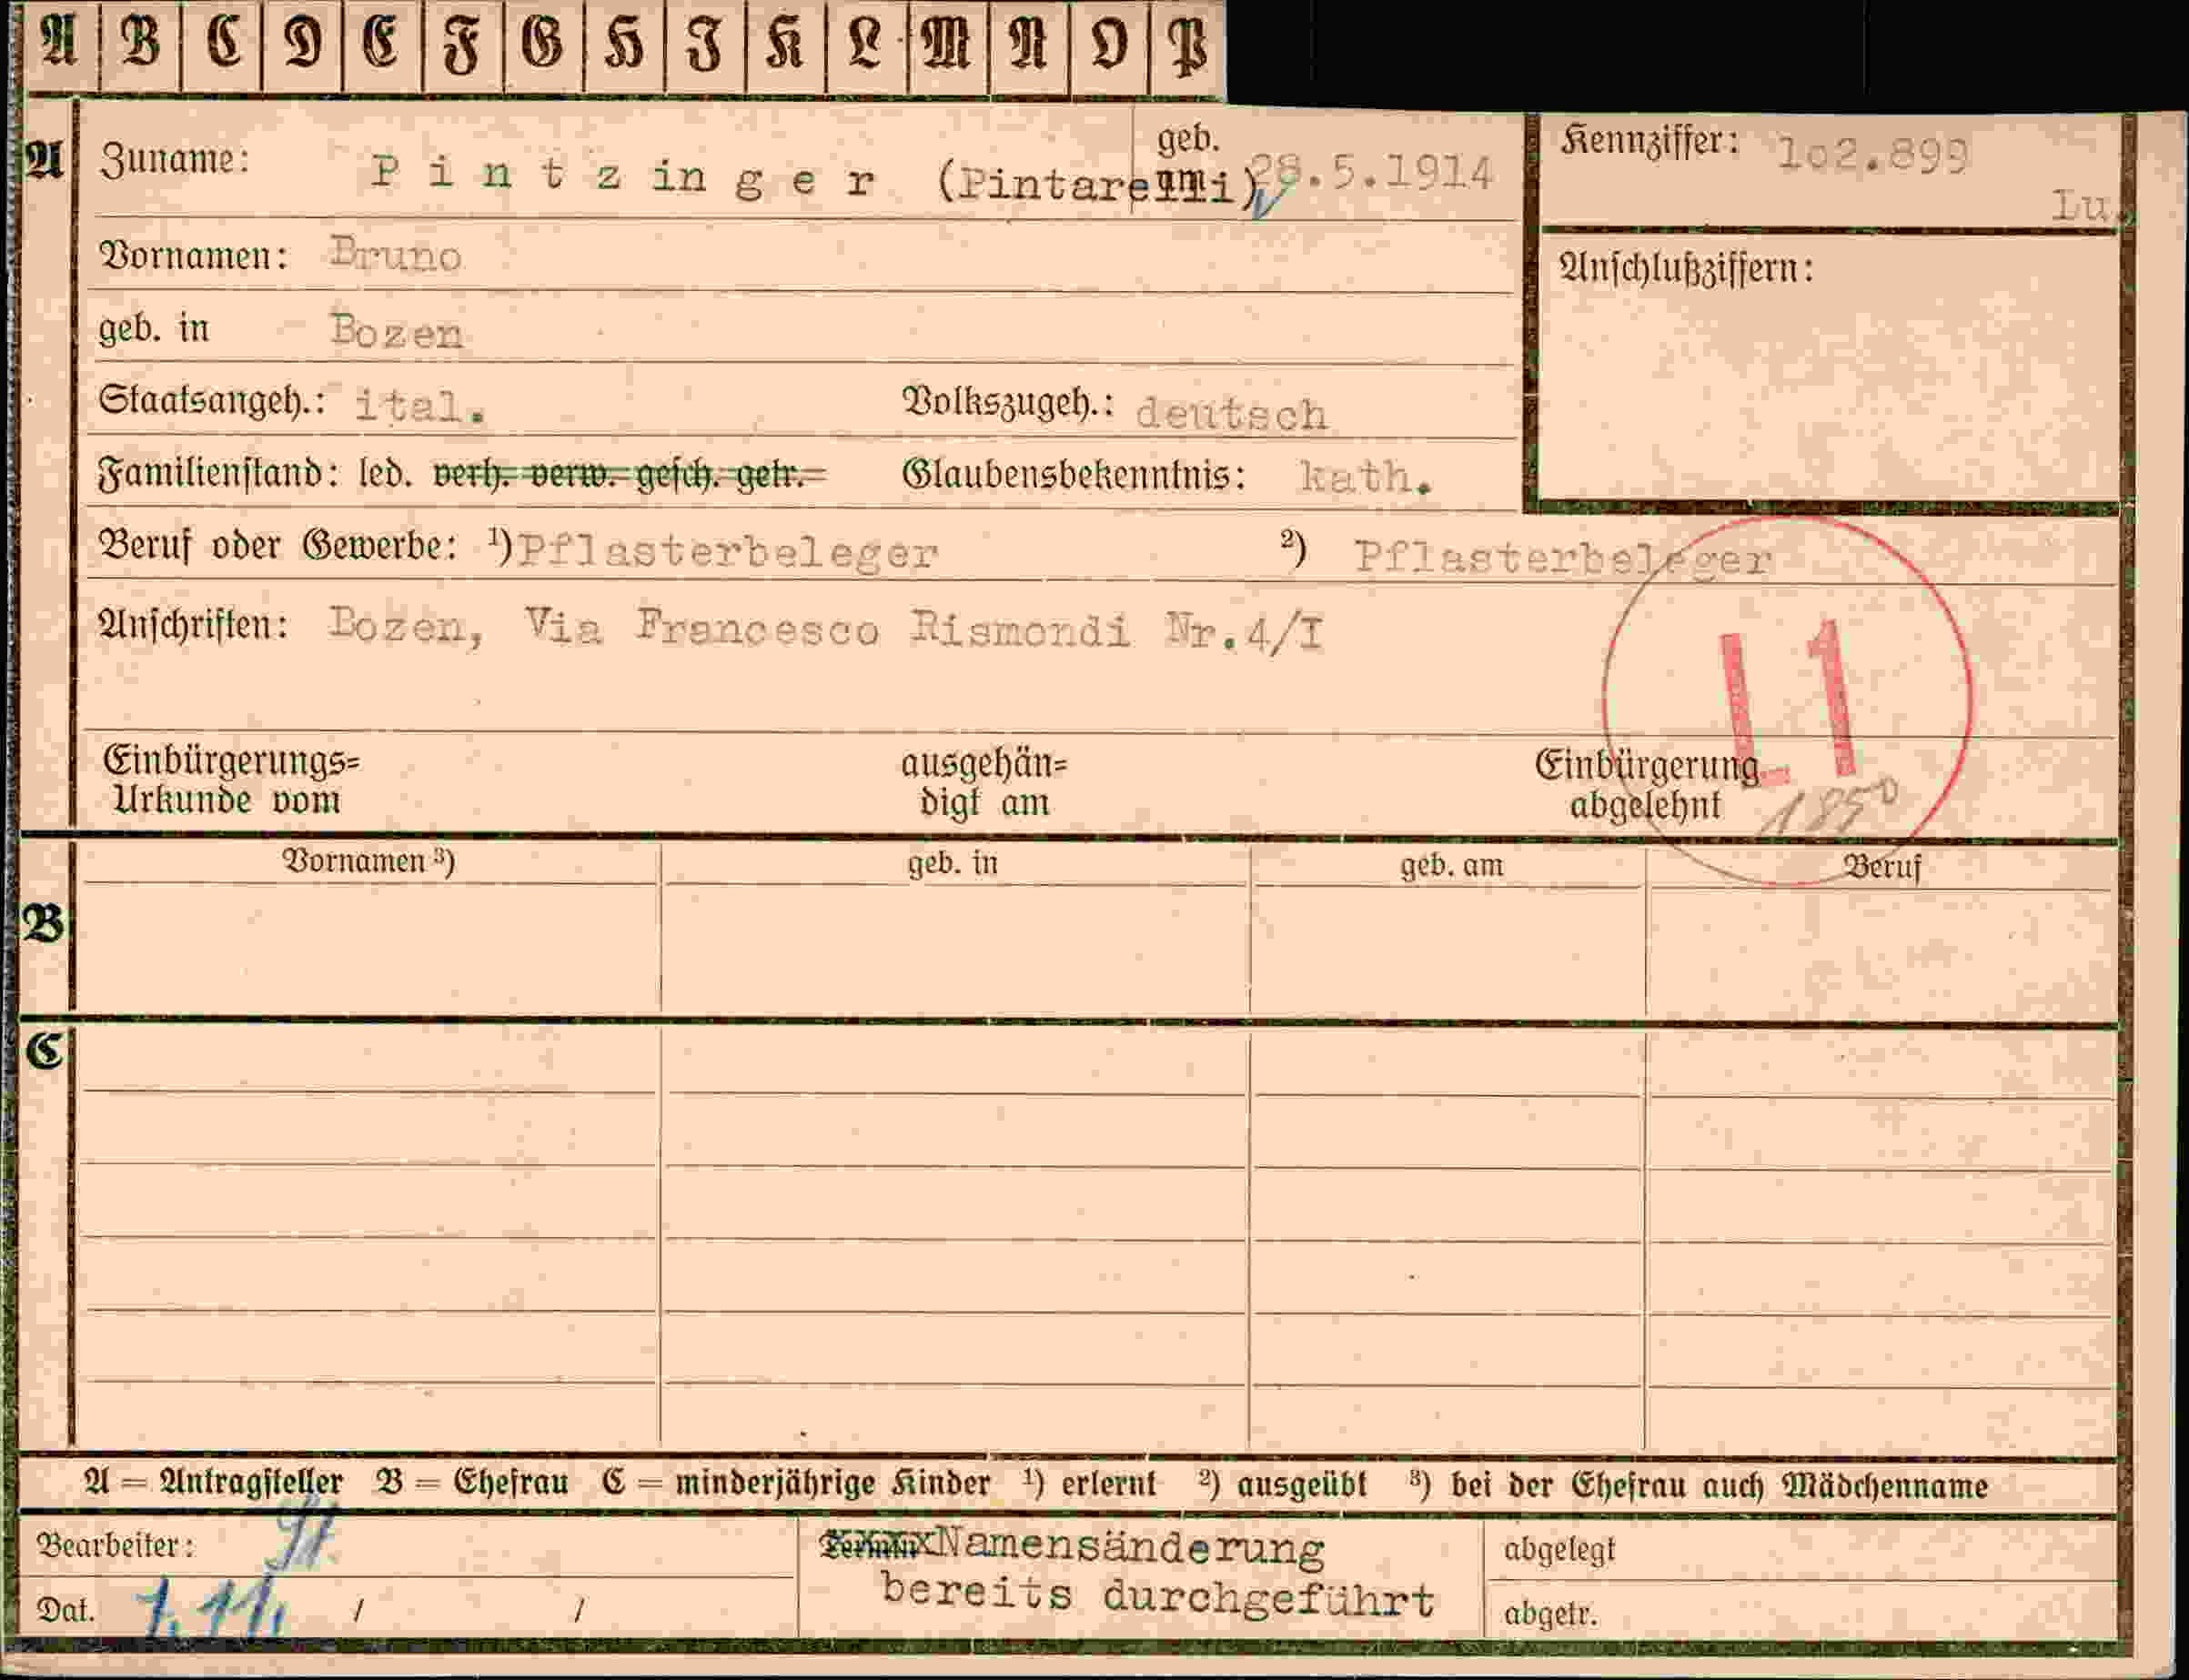 A B C D E F G H I K L M N O P
A Zuname: Pintzinger (Pintarelli) geb. am 28.5.1914 Kennziffer: 1o2.899
Lu.
Vornamen: Bruno
Anschlußziffern:
geb. in Bozen
Staatsangeh.: ital. Volkszugeh.: deutsch
Familienstand: led. verh. verw. gesch. getr. Glaubensbekenntnis: kath.
Beruf oder Gewerbe: ¹) Pflasterbeleger ²) Pflasterbeleger
Anschriften: Bozen, Via Francesco Rismondi Nr.4/I
L1
Einbürgerungs= ausgehän= Einbürgerung
Urkunde vom digt am abgelehnt 1850
Vornamen ³) geb. in geb. am Beruf
B
C
A = Antragsteller B = Ehefrau C = minderjährige Kinder ¹) erlernt ²) ausgeübt ³) bei der Ehefrau auch Mädchenname
Bearbeiter: Namensänderung abgelegt
bereits durchgeführt
Dat. 1.11. / / abgetr.